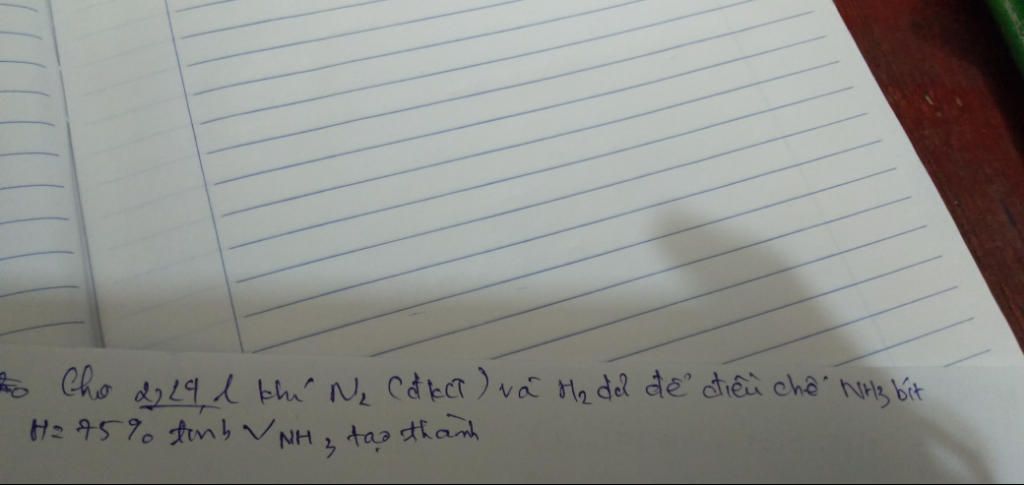 Cho 2,24 l khí N2 (đkct) và H2 dư để điều chế NH3 bít
H = 75% tính VNH3 tạo thành